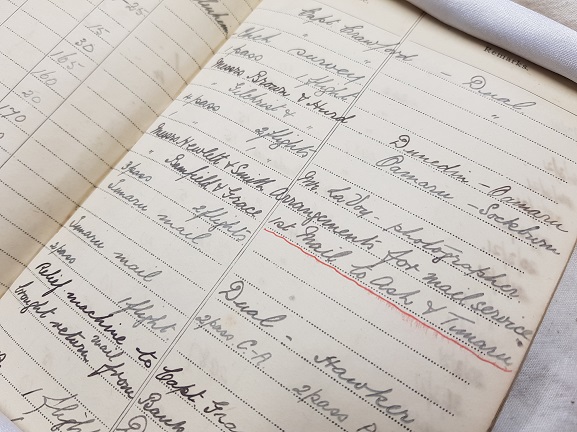 -25
15
30
165
160
20
170
Capt Crawford
"
survey
1 pass 1 flight
Messrs Brown & Hurd
" Gilchrist & "
4 pass 2 flights
Messrs Hewlett & Smith
" Banfield & Grace
3 pass 2 flights
Timaru mail
Timaru mail
2 pass 1 flight
relief machine to Capt
brought return mail from
1 flight
Remarks.
- Dual
"
Dunedin - Oamaru
Oamaru - Sockburn
photographer
Arrangements for mail service
1st Mail to Ash. & Timaru
Dual - Hawker
2 pass C-A 2 pass